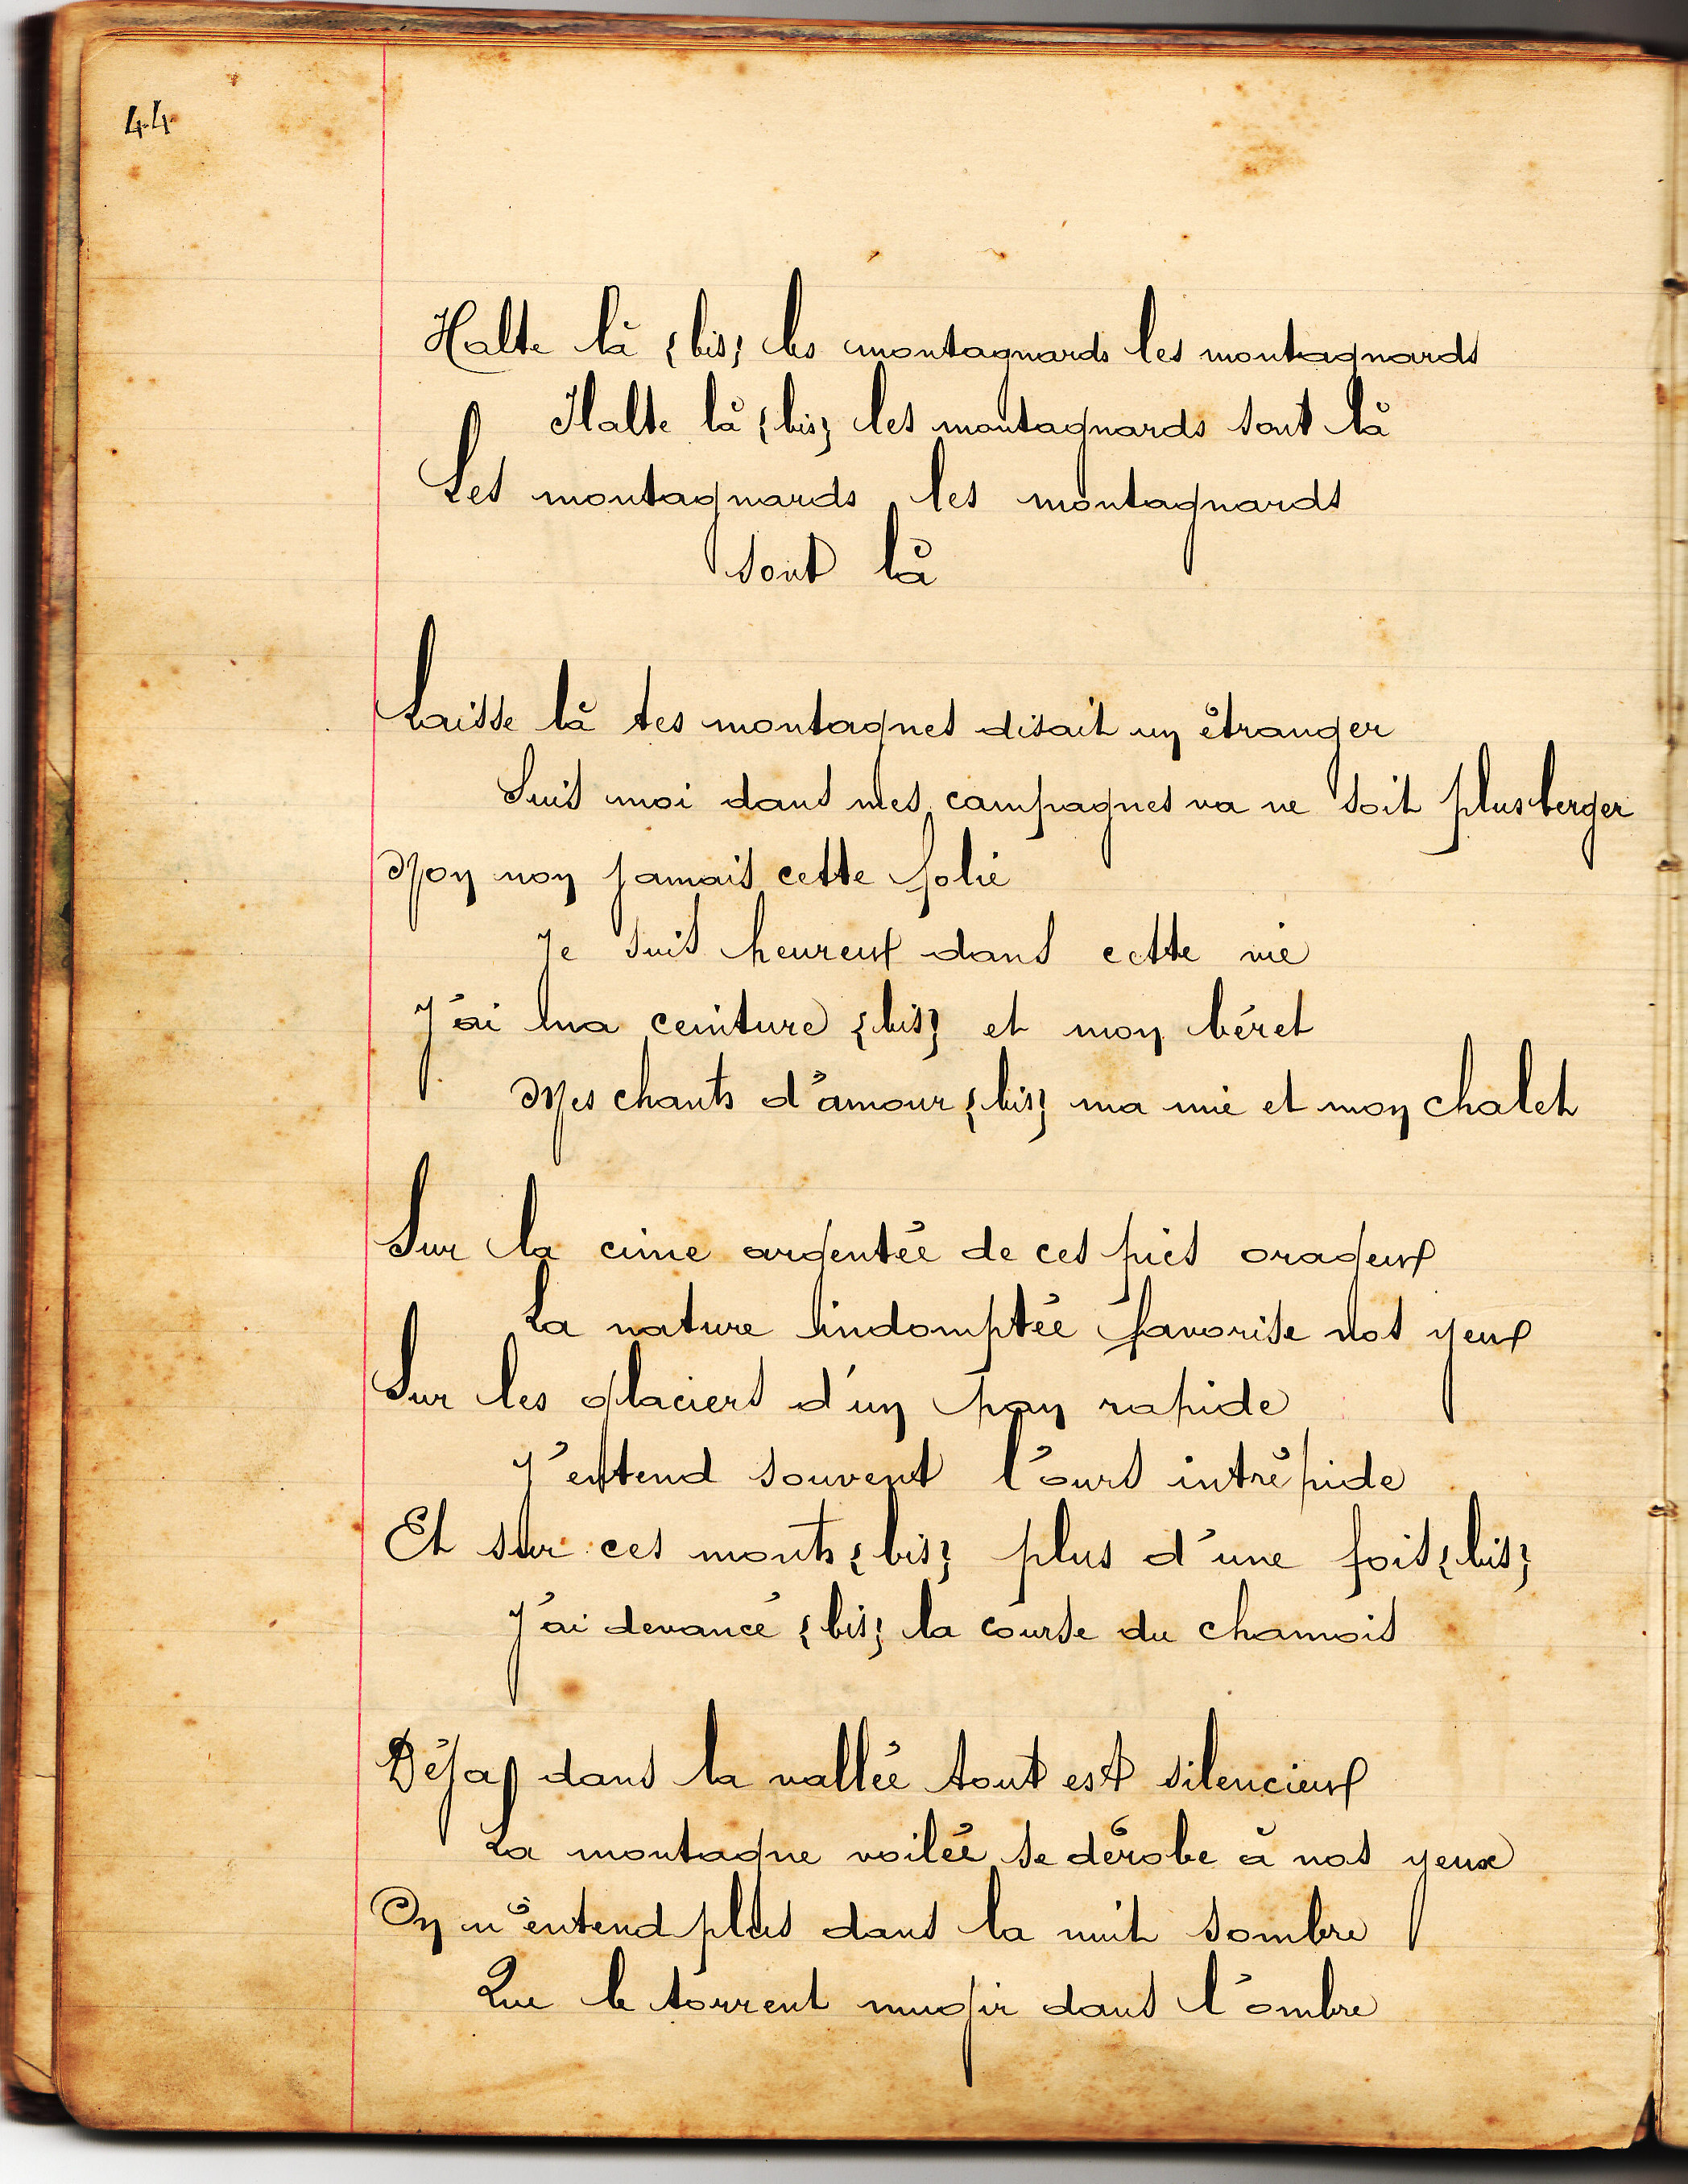 44
Halte là {bis} les montagnards les montagnards
Halte là {bis} les montagnards sont là
Les montagnards les montagnards
sont là
Laisse là tes montagnes disait un étranger
Suis moi dans mes campagnes va ne soit plus berger
Non non jamais cette folie
Je suis heureux dans cette vie
J'ai ma ceinture {bis} et mon béret
Mes chants d'amour {bis} ma mie et mon chalet
Sur la cime argentée de ces pics orageux
La nature indomptée favorise nos yeux
Sur les glaciers d'un pan rapide
J'entend souvent l'ours intrépide
Et sur ces monts {bis} plus d'une fois {bis}
J'ai devancé {bis} la course du chamois
Déja dans la vallée tout est silencieux
La montagne voilée se dérobe à nos yeux
On n'entend plus dans la nuit sombre
Que le torrent mugir dans l'ombre